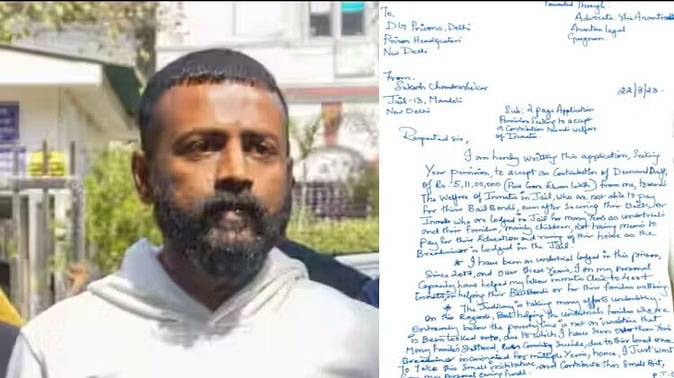 Forwarded Through:
To,
DG Prisons, Delhi
Advocate Shri Anant
Prison Headquaters
Anantam Legal
New Delhi
Gurgaon.
From,
Sukesh Chandrashekar
22/3/23.
Jail-13, Mandoli
New Delhi
Sub: 2 page Application
Permission Seeking to accept
a Contribution towards welfare
of Inmates.
Respected sir,
I am humbly writting this application, Seeking
Your permission, to accept an Contribution of Demand Draft,
of Rs. 5,11,00,000 (Five Crore Eleven Lakh) from me, towards
The Welfare of Inmates in Jail, who are not able to pay
for their Bail Bonds, even after Securing their Bail, for
Inmates who are lodged in Jail for Many Years as undertrials
and their families, mainly children, not having means to
Pay for their Education and running of their house as the
Breadwinner is Lodged in the Jail.
* I have been an undertrial lodged in this prison,
Since 2017, and Over these Years, I in my personal
Capacity have helped my fellow inmates Close to 400+
inmates, in helping their Bail Bonds or for their families wellbeing
* The Judiciary is taking many efforts undoubtedly
On this Regards, But helping the Undertrials families who are
Extremely below the poverty line is not an initiative that
is Been looked onto, due to which I have Seen Over these Years
Many Families Shattered, even Commiting Suicide, due to their loved ones
Breadwinner incarcerated for multiple Years, hence, I Just want
To Take this Small initiative, and Contribute this Small Bit,
from my Personal earning funds.
P.T.O